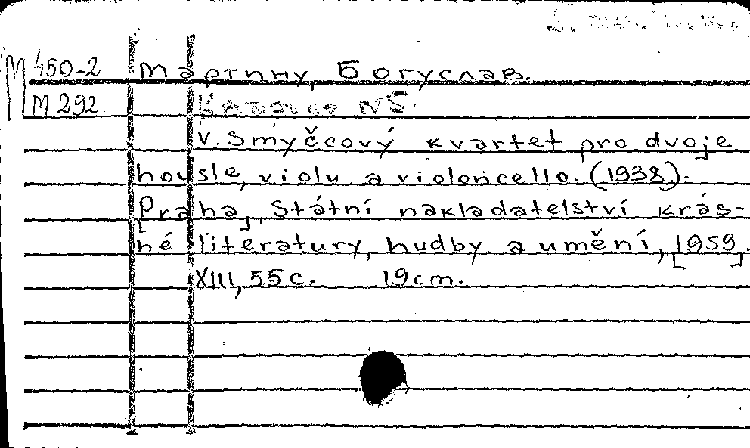 М 450-2 Мартину, Богуслав.
М 292 Квартет №5.
V. Smyčcový kvartet pro dvoje
housle, violu a violoncello. (1938).
Praha, Státní nakladatelství krás-
né literatury, hudby a umění, [1959].
XIII, 55 с. 19cm.